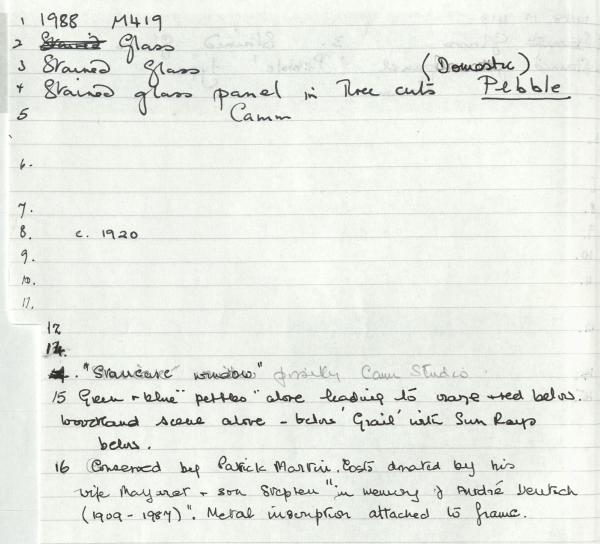 1 1988 M419
2 Stained Glass
3 Stained Glass (Domestic)
4 Stained glass panel in three cuts Pebble
5 Camm
6.
7.
8. c. 1920
9.
10.
11.
12
14.
"Staircase window" possibly Camm Studio.
15 Green + blue "pebbles" above leading to orange + red below.
woodland scene above - below 'Grail' with Sun Rays
below.
16 Conserved by Patrick Martin. Costs donated by his
wife Margaret + son Stephen "in memory of André Deutsch
(1909 - 1987)". Metal inscription attached to frame.